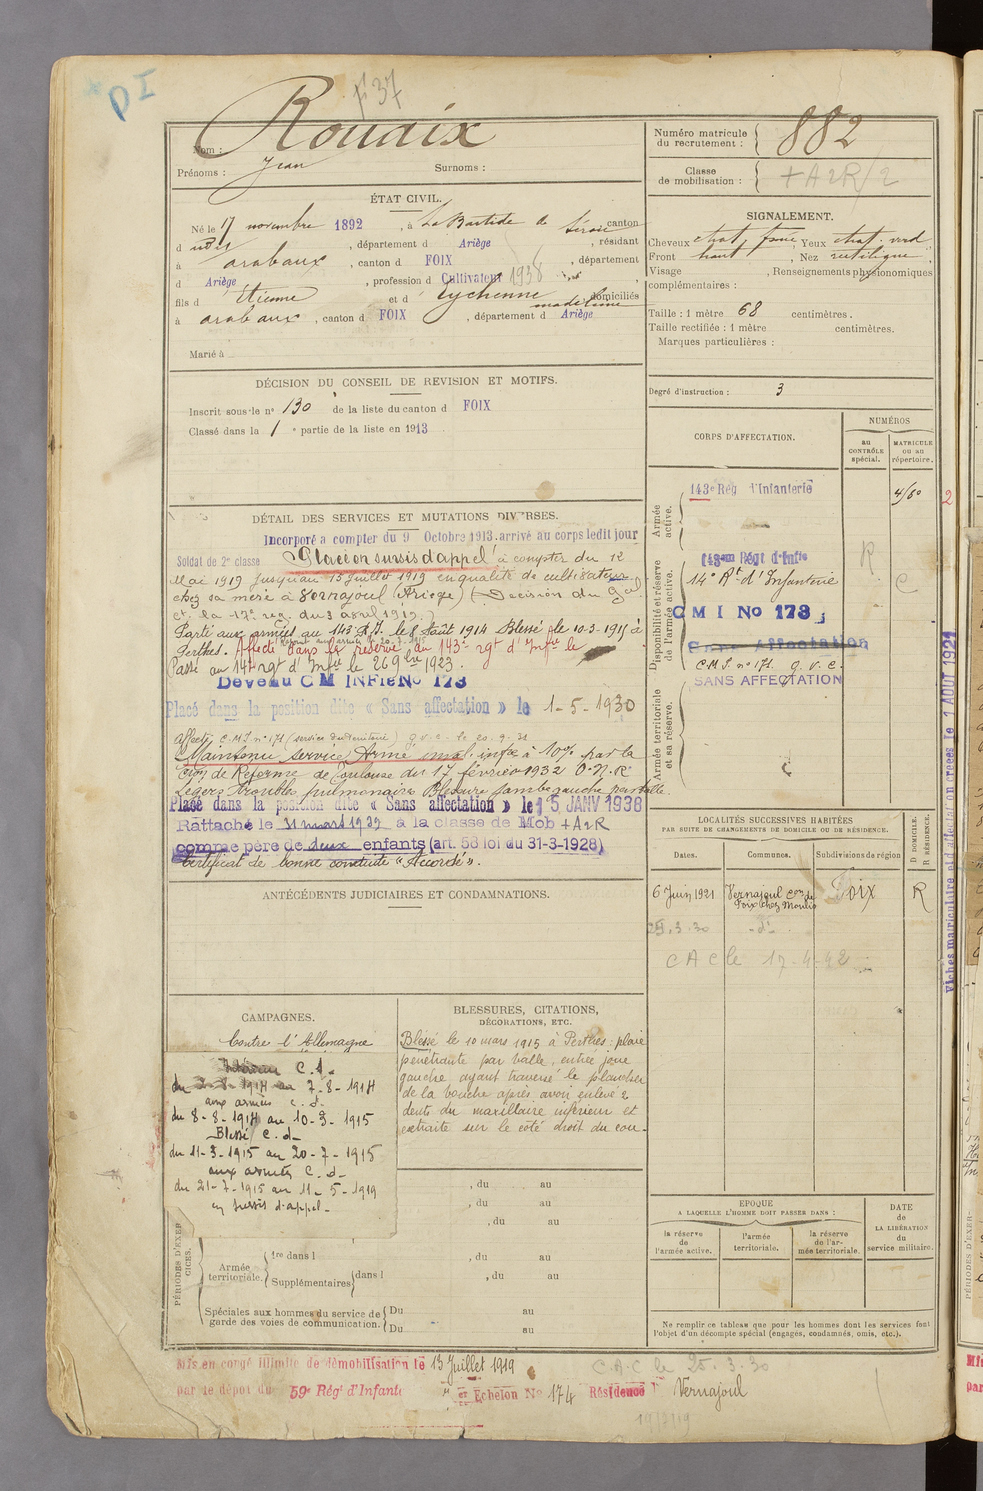 D I
F 37
Nom : Rouaix
Prénoms : Jean Surnoms :
Numéro matricule du recrutement : 882
Classe de mobilisation : + A2R/2
ÉTAT CIVIL.
Né le 17 novembre 1892, à La Bastide de Sérou canton
d udit, département d Ariège, résidant
à arabaux, canton d FOIX, département
d Ariège, profession d Cultivateur 1938
fils d Etienne et d Eychenne madeleine domiciliés
à arabaux, canton d FOIX, département d Ariège
Marié à
SIGNALEMENT.
Cheveux chat. foncé Yeux chat. verd.
Front haut, Nez rectiligne,
Visage , Renseignements physionomiques
complémentaires :
Taille : 1 mètre 68 centimètres.
Taille rectifiée : 1 mètre centimètres.
Marques particulières :
Degré d'instruction : 3
DÉCISION DU CONSEIL DE REVISION ET MOTIFS.
Inscrit sous le n° 130 de la liste du canton d FOIX
Classé dans la 1e partie de la liste en 1913
CORPS D'AFFECTATION.
NUMÉROS
au CONTRÔLE spécial.
MATRICULE ou au répertoire.
Armée active.
143e Rég d'Infanterie
2
Disponibilité et réserve de l'armée active.
143em Régt d'Infie
14e Rt d'Infanterie
C M I No 173
Sans Affectation
C.M.I. n° 171. g.v.c.
SANS AFFECTATION
R
C
Armée territoriale et sa réserve.
DÉTAIL DES SERVICES ET MUTATIONS DIVERSES.
Incorporé a compter du 9 Octobre 1913. arrivé au corps ledit jour
Soldat de 2e classe Placé en sursis d'appel à compter du 12
Mai 1919 jusqu'au 13 Juillet 1919 en qualité de cultivateur
chez sa mère à Vernajoul (Ariège) (Décision du Gal
Ct. la 17e reg. du 3 avril 1919.)
Parti aux armées au 143e R.I. le 8 Août 1914 Blessé le 10-3-1915 à
Perthes. Affecté dans la réserve au 143e rgt d'Infie le
Passé au 14e rgt d'Infie le 26 9bre 1923.
Devenu C M INFie No 173
Placé dans la position dite « Sans affectation » le 1-5-1930
Affecté C.M.I. n° 171 (service du territoire) g.v.c. le 20.9.31
Maintenu service Armé inval. infre à 10% par la
Con de Réforme de Toulouse du 17 février 1932 O.N.R
Légers troubles pulmonaires Blessure jambe gauche par balle.
Placé dans la position dite « Sans affectation » le 15 JANV 1938
Rattaché le 31 mars 1939 à la classe de Mob + A2R
comme père de deux enfants (art. 58 loi du 31-3-1928)
Certificat de bonne conduite « Accordé ».
LOCALITÉS SUCCESSIVES HABITÉES
PAR SUITE DE CHANGEMENTS DE DOMICILE OU DE RÉSIDENCE.
D DOMICILE. R RÉSIDENCE.
Dates. Communes. Subdivisions de région
6 Juin 1921 Vernajoul Con de Foix chez Moulis Foix R
25.3.30 -d°-
C A C le 17-4-42
Fiches matriculaire old affectation créées le 1 AOUT 1921
ANTÉCÉDENTS JUDICIAIRES ET CONDAMNATIONS.
CAMPAGNES.
Contre l'Allemagne
Intérieur C.d.
du 2-8-1914 au 7-8-1914
aux armées C.d.
du 8-8-1914 au 10-3-1915
Blessé C.d-
du 11-3-1915 au 20-7-1915
aux armées C.d-
du 21-7-1915 au 11-5-1919
en sursis d'appel-
BLESSURES, CITATIONS,
DÉCORATIONS, ETC.
Blessé le 10 mars 1915 à Perthes : plaie
pénétrante par balle, entrée joue
gauche ayant traversé le plancher
de la bouche après avoir enlevé 2
dents du maxillaire inférieur et
extraite sur le côté droit du cou-
, du au
, du au
, du au
PÉRIODES D'EXERCICES.
Armée territoriale. 1re dans l , du au
Supplémentaires dans l , du au
Spéciales aux hommes du service de garde des voies de communication. Du au
Du au
EPOQUE
A LAQUELLE L'HOMME DOIT PASSER DANS :
la réserve de l'armée active.
l'armée territoriale.
la réserve de l'armée territoriale.
DATE de LA LIBÉRATION du service militaire.
Ne remplir ce tableau que pour les hommes dont les services font
l'objet d'un décompte spécial (engagés, condamnés, omis, etc.).
Mis en congé illimité de démobilisation le 13 Juillet 1919
C.A.C le 25.3.30
par le dépôt du 59e Régt d'Infant. Echelon No 174 Résidence Vernajoul